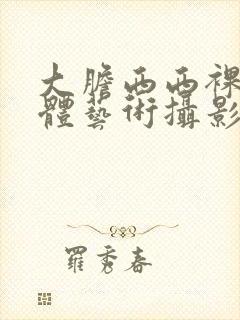 大膽西西裸
體藝術攝影
羅秀春